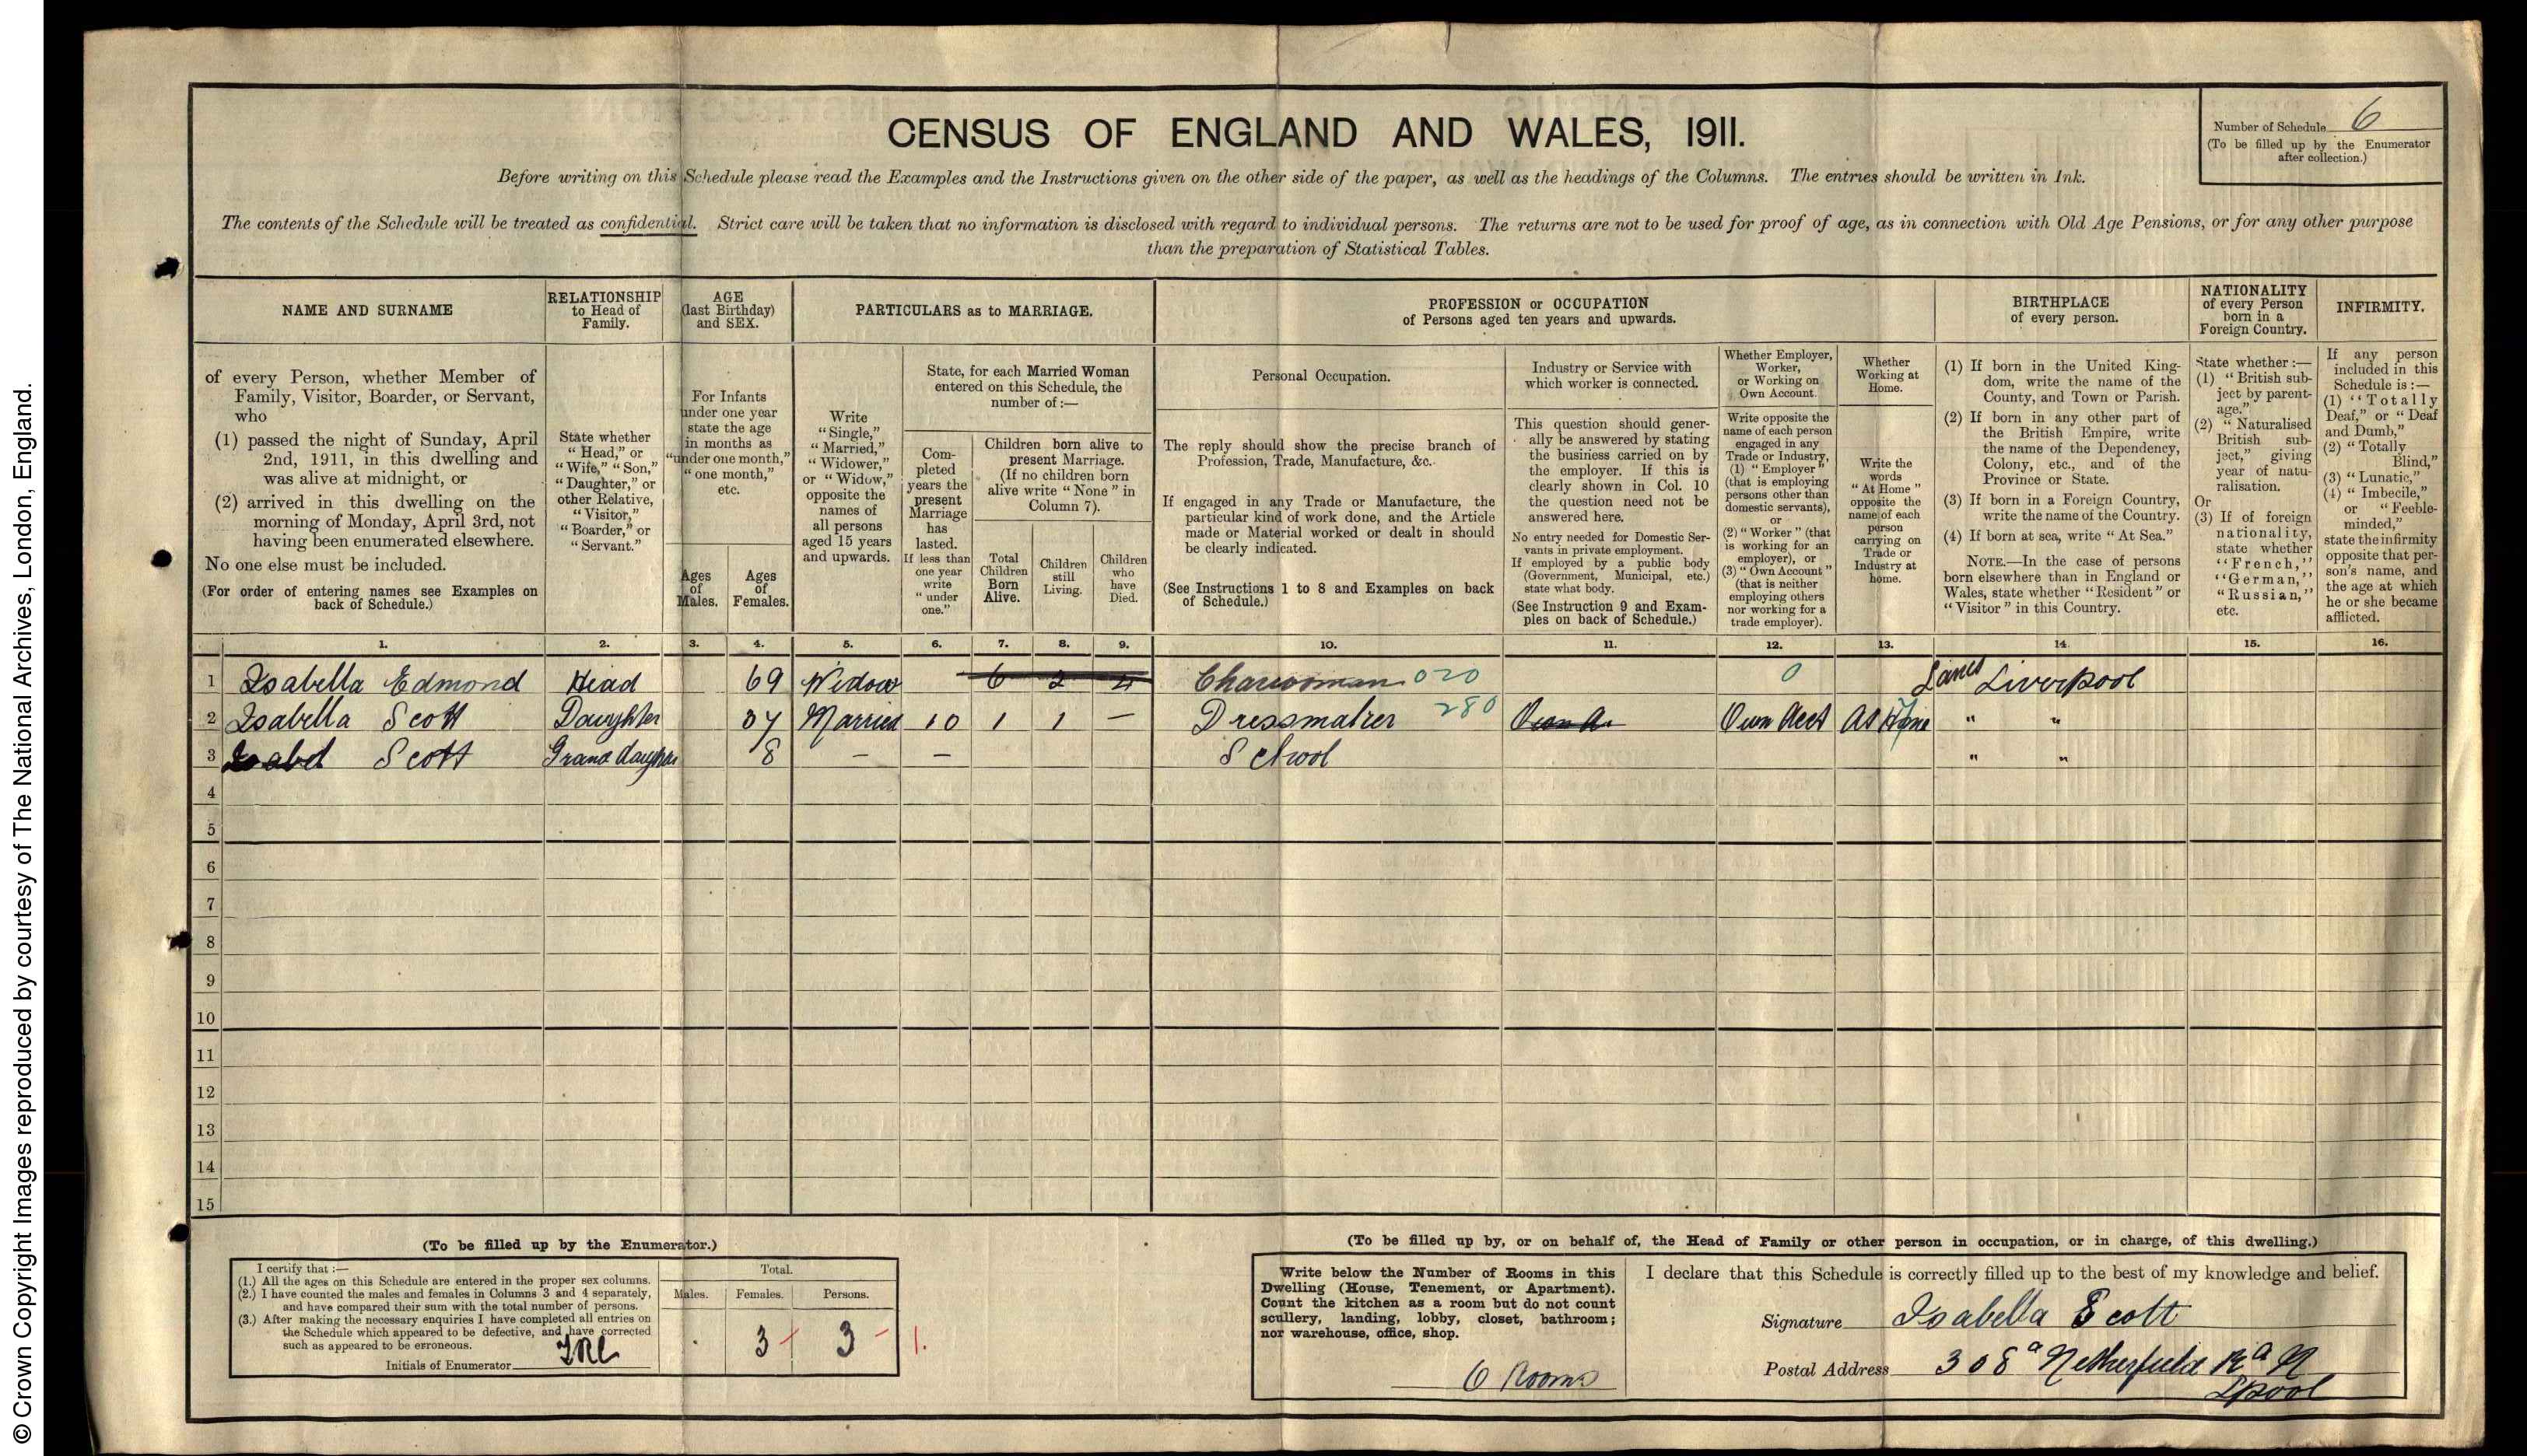 © Crown Copyright Images reproduced by courtesy of The National Archives, London, England.
CENSUS OF ENGLAND AND WALES, 1911.
Number of Schedule 6
(To be filled up by the Enumerator
after collection.)
Before writing on this Schedule please read the Examples and the Instructions given on the other side of the paper, as well as the headings of the Columns. The entries should be written in Ink.
The contents of the Schedule will be treated as confidential. Strict care will be taken that no information is disclosed with regard to individual persons. The returns are not to be used for proof of age, as in connection with Old Age Pensions, or for any other purpose
than the preparation of Statistical Tables.
NAME AND SURNAME
RELATIONSHIP
to Head of
Family.
AGE
(last Birthday)
and SEX.
PARTICULARS as to MARRIAGE.
PROFESSION or OCCUPATION
of Persons aged ten years and upwards.
BIRTHPLACE
of every person.
NATIONALITY
of every Person
born in a
Foreign Country.
INFIRMITY.
of every Person, whether Member of
Family, Visitor, Boarder, or Servant,
who
(1) passed the night of Sunday, April
2nd, 1911, in this dwelling and
was alive at midnight, or
(2) arrived in this dwelling on the
morning of Monday, April 3rd, not
having been enumerated elsewhere.
No one else must be included.
(For order of entering names see Examples on
back of Schedule.)
State whether
"Head," or
"Wife," "Son,"
"Daughter," or
other Relative,
"Visitor,"
"Boarder," or
"Servant."
For Infants
under one year
state the age
in months as
"under one month,"
"one month,"
etc.
Ages
of
Males.
Ages
of
Females.
Write
"Single,"
"Married,"
"Widower,"
or "Widow,"
opposite the
names of
all persons
aged 15 years
and upwards.
State, for each Married Woman
entered on this Schedule, the
number of :—
Com-
pleted
years the
present
Marriage
has
lasted.
If less than
one year
write
"under
one."
Children born alive to
present Marriage.
(If no children born
alive write "None" in
Column 7).
Total
Children
Born
Alive.
Children
still
Living.
Children
who
have
Died.
Personal Occupation.
The reply should show the precise branch of
Profession, Trade, Manufacture, &c.
If engaged in any Trade or Manufacture, the
particular kind of work done, and the Article
made or Material worked or dealt in should
be clearly indicated.
(See Instructions 1 to 8 and Examples on back
of Schedule.)
Industry or Service with
which worker is connected.
This question should gener-
ally be answered by stating
the business carried on by
the employer. If this is
clearly shown in Col. 10
the question need not be
answered here.
No entry needed for Domestic Ser-
vants in private employment.
If employed by a public body
(Government, Municipal, etc.)
state what body.
(See Instruction 9 and Exam-
ples on back of Schedule.)
Whether Employer,
Worker,
or Working on
Own Account.
Write opposite the
name of each person
engaged in any
Trade or Industry,
(1) "Employer"
(that is employing
persons other than
domestic servants),
or
(2) "Worker" (that
is working for an
employer), or
(3) "Own Account"
(that is neither
employing others
nor working for a
trade employer).
Whether
Working at
Home.
Write the
words
"At Home"
opposite the
name of each
person
carrying on
Trade or
Industry at
home.
(1) If born in the United King-
dom, write the name of the
County, and Town or Parish.
(2) If born in any other part of
the British Empire, write
the name of the Dependency,
Colony, etc., and of the
Province or State.
(3) If born in a Foreign Country,
write the name of the Country.
(4) If born at sea, write "At Sea."
NOTE.—In the case of persons
born elsewhere than in England or
Wales, state whether "Resident" or
"Visitor" in this Country.
State whether :—
(1) "British sub-
ject by parent-
age."
(2) "Naturalised
British sub-
ject," giving
year of natu-
ralisation.
Or
(3) If of foreign
nationality,
state whether
"French,"
"German,"
"Russian,"
etc.
If any person
included in this
Schedule is :—
(1) "Totally
Deaf," or "Deaf
and Dumb,"
(2) "Totally
Blind,"
(3) "Lunatic,"
(4) "Imbecile,"
or "Feeble-
minded,"
state the infirmity
opposite that per-
son's name, and
the age at which
he or she became
afflicted.
1. 2. 3. 4. 5. 6. 7. 8. 9. 10. 11. 12. 13. 14. 15. 16.
1 Isabella Edmond Head 69 Widow 6 2 4 Charwoman 020 0 Lancs Liverpool
2 Isabella Scott Daughter 37 Married 10 1 1 — Dressmaker 280 Own Acct At Home " "
3 Isabel Scott Grand daughter 8 — — School " "
4
5
6
7
8
9
10
11
12
13
14
15
(To be filled up by the Enumerator.)
I certify that :—
(1.) All the ages on this Schedule are entered in the proper sex columns.
(2.) I have counted the males and females in Columns 3 and 4 separately,
and have compared their sum with the total number of persons.
(3.) After making the necessary enquiries I have completed all entries on
the Schedule which appeared to be defective, and have corrected
such as appeared to be erroneous.
Initials of Enumerator
Total.
Males. Females. Persons.
3 3 1.
(To be filled up by, or on behalf of, the Head of Family or other person in occupation, or in charge, of this dwelling.)
Write below the Number of Rooms in this
Dwelling (House, Tenement, or Apartment).
Count the kitchen as a room but do not count
scullery, landing, lobby, closet, bathroom;
nor warehouse, office, shop.
6 Rooms
I declare that this Schedule is correctly filled up to the best of my knowledge and belief.
Signature Isabella Scott
Postal Address 308a Netherfield Rd N
Lpool